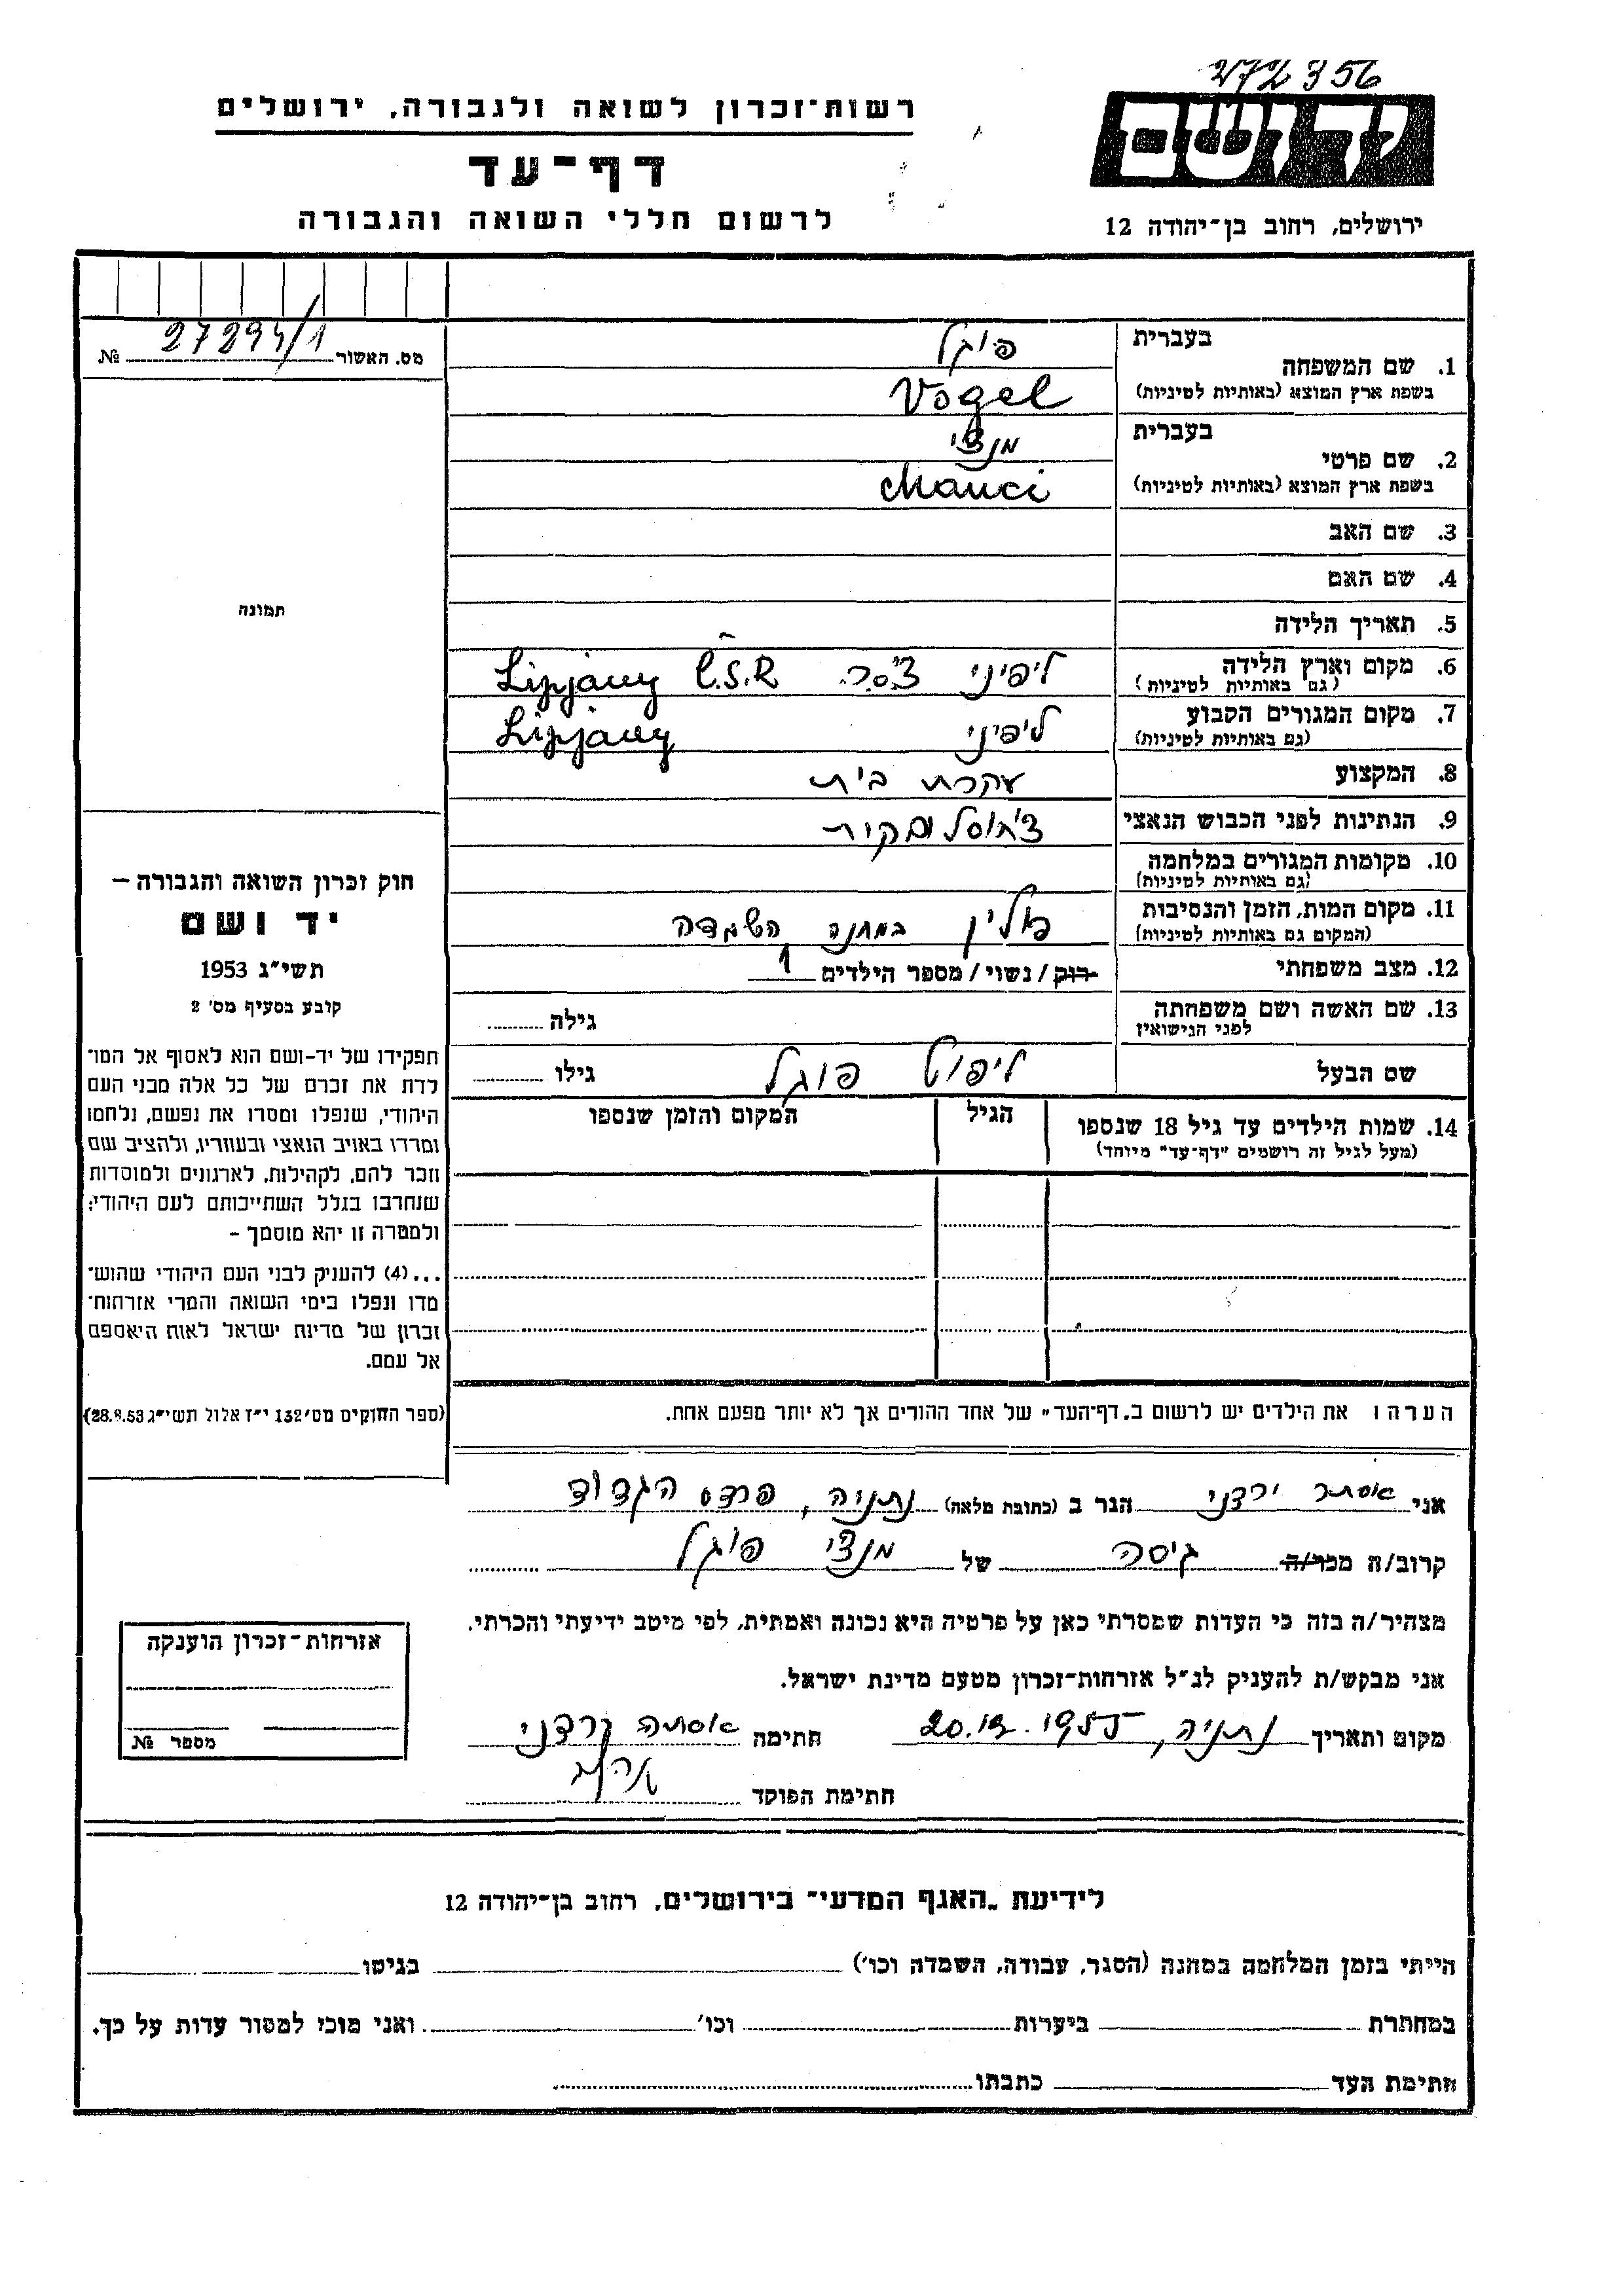 272356
רשות־זכרון לשואה ולגבורה, ירושלים
יד ושם
דף־עד
לרשום חללי השואה והגבורה
ירושלים, רחוב בן־יהודה 12
מס. האשור 27294/1 №
תמונה
חוק זכרון השואה והגבורה –
יד ושם
תשי״ג 1953
קובע בסעיף מס׳ 2
תפקידו של יד-ושם הוא לאסוף אל המו־
לדת את זכרם של כל אלה מבני העם
היהודי, שנפלו ומסרו את נפשם, נלחמו
ומרדו באויב הנאצי ובעוזריו, ולהציב שם
וזכר להם, לקהילות, לארגונים ולמוסדות
שנחרבו בגלל השתייכותם לעם היהודי;
ולמטרה זו יהא מוסמך –
...(4) להעניק לבני העם היהודי שהוש־
מדו ונפלו בימי השואה והמרי אזרחות־
זכרון של מדינת ישראל לאות היאספם
אל עמם.
(ספר החוקים מס׳ 132 י״ז אלול תשי״ג 28.8.53)
בעברית פוגל
1. שם המשפחה
בשפת ארץ המוצא (באותיות לטיניות) Vogel
בעברית מנצי
2. שם פרטי
בשפת ארץ המוצא (באותיות לטיניות) Manci
3. שם האב
4. שם האם
5. תאריך הלידה
6. מקום וארץ הלידה ליפיני צ׳.ס.ר. Č.S.R Lipjany
(גם באותיות לטיניות)
7. מקום המגורים הקבוע ליפיני Lipjany
(גם באותיות לטיניות)
8. המקצוע עקרת בית
9. הנתינות לפני הכבוש הנאצי צ׳כוסלובקית
10. מקומות המגורים במלחמה
(גם באותיות לטיניות)
11. מקום המות, הזמן והנסיבות פולין במחנה השמדה
(המקום גם באותיות לטיניות)
12. מצב משפחתי רוק / נשוי / מספר הילדים 1
13. שם האשה ושם משפחתה גילה
לפני הנישואין
שם הבעל ליפוט פוגל גילו
14. שמות הילדים עד גיל 18 שנספו הגיל המקום והזמן שנספו
(מעל לגיל זה רושמים ״דף־עד״ מיוחד)
הערה: את הילדים יש לרשום ב„דף־העד״ של אחד ההורים אך לא יותר מפעם אחת.
אני אסתר ירדני הגר ב (כתובת מלאה) נתניה, פרדס הגדוד
קרוב/ה מכר/ה גיסה של מנצי פוגל
מצהיר/ה בזה כי העדות שמסרתי כאן על פרטיה היא נכונה ואמתית, לפי מיטב ידיעתי והכרתי.
אני מבקש/ת להעניק לנ״ל אזרחות־זכרון מטעם מדינת ישראל.
מקום ותאריך נתניה, 20.12.1955 חתימה
חתימת הפוקד
אזרחות־זכרון הוענקה
מספר №
לידיעת „האגף המדעי״ בירושלים, רחוב בן־יהודה 12
הייתי בזמן המלחמה במחנה (הסגר, עבודה, השמדה וכו׳) בגיטו
במחתרת ביערות וכו׳ ואני מוכז למסור עדות על כך.
חתימת העד כתבתו